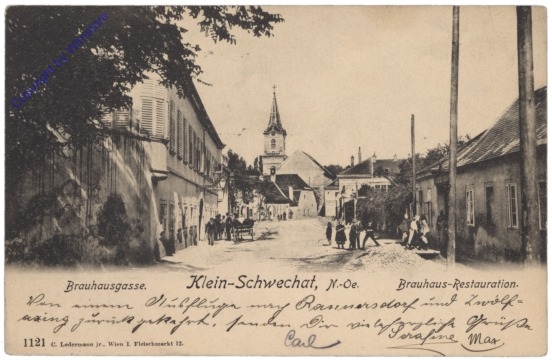 Brauhausgasse. Klein-Schwechat, N.-Oe. Brauhaus-Restauration.
Von einem Ausfluge nach Rannersdorf und Zwölf-
axing zurückgekehrt, senden Dir viele herzliche Grüße
Serafine
Carl Max
1121 C. Ledermann jr., Wien I. Fleischmarkt 12.